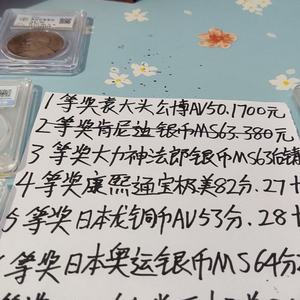 1等奖袁大头公博AV50.1700元
2等奖肯尼迪银币MS63-380元
3等奖大力神法郎银币MS63后
4等奖康熙通宝极美82分.27
5等奖日本龙铜币AV53分.28
等奖日本奥运银币MS64分